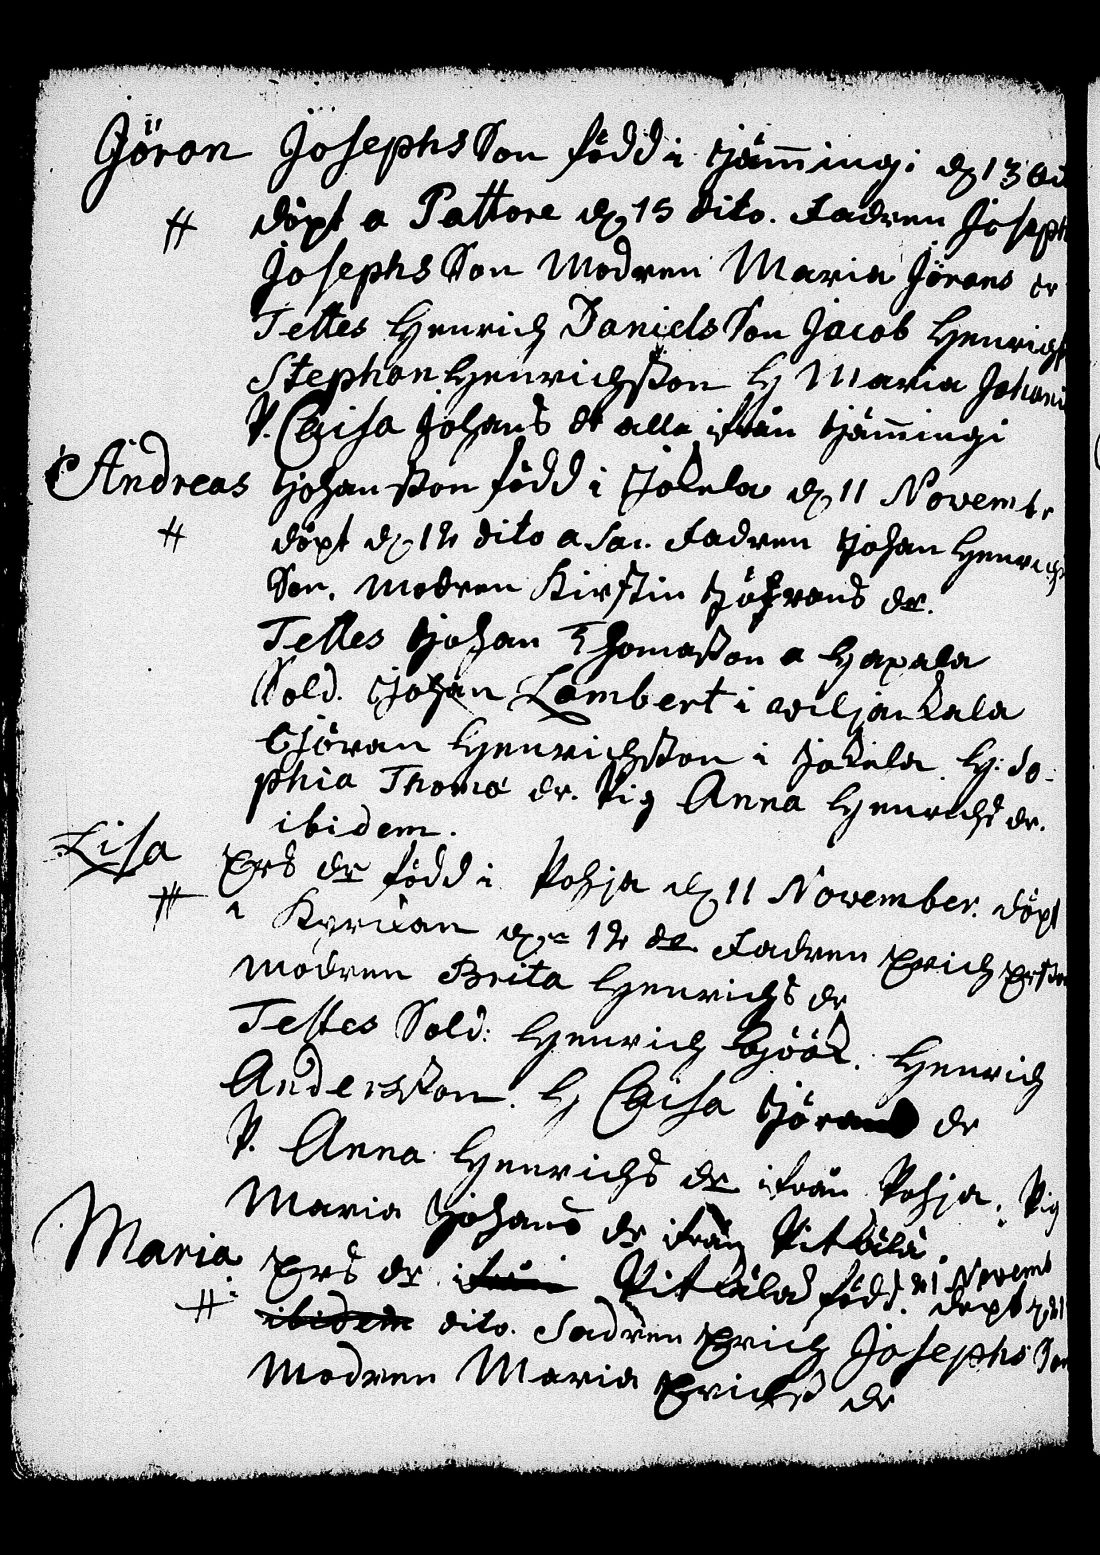 Jöran Josephs Son född i Jämmingi d 13 Oct
döpt a Pattore d 15 dito. Fadren Joseph
Josephs Son Modren Maria Jörans dr
Testes Henrich Daniels Son Jacob Henrichs
Stephan Henrichsson H Maria Johans
P. Caisa Johans dr alla ifrån Jämmingi
Andreas Johansson född i Jokela d 11 Novembr
döpt d 12 dito a Sac. Fadren Johan Henrichs
Son. Modren Kirstin Jöhrans dr.
Testes Johan Thomasson a Hapala
Sold. Johan Lambert i wiljankala
Göran Henrichsson i Jokela. H: So-
phia Thomæ dr. Pig Anna Henrichs dr.
ibidem.
Lisa Ers dr född i Pohja d 11 November. döpt
i Kyrckan d 12 do. Fadren Erich Ersson
Modren Brita Henrichs dr
Testes Sold: Henrich Höök. Henrich
Andersson. H Caisa Jörans dr
P. Anna Henrichs dr ifrån Pohja. Pig
Maria Johans dr ifrån Pitkälä.
Maria Ers dr ifrån Pitkälä född. Novemb
ibidem dito. döpt Fadren Erich Josephs Son
Modren Maria Erichs dr